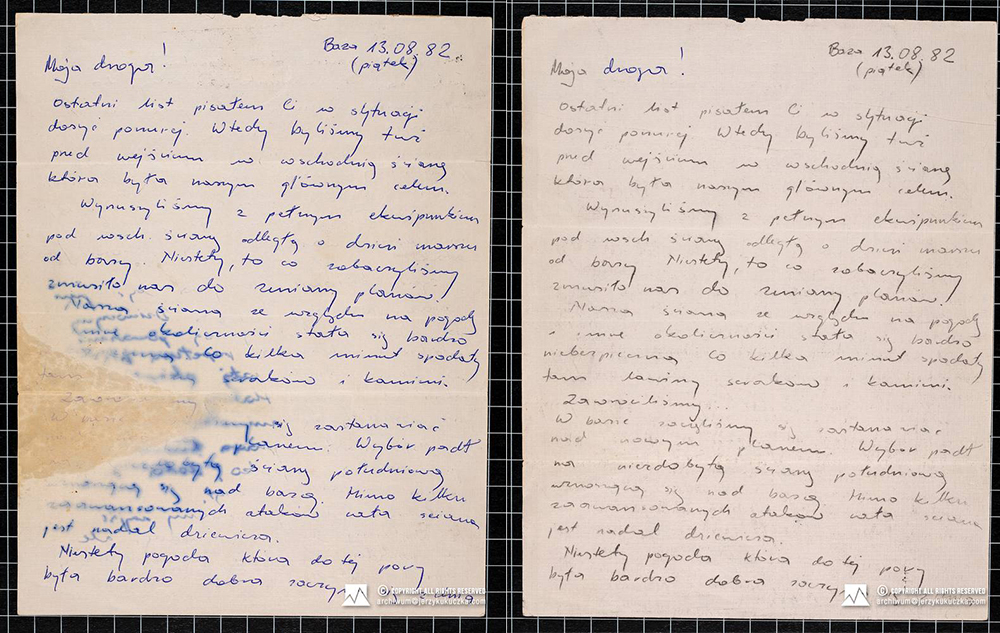 Baza 13.08.82
(piątek)
Moja droga!
Ostatni list pisałem Ci w sytuacji
dosyć ponurej. Wtedy byliśmy tuż
przed wejściem w wschodnią ścianę
która była naszym głównym celem.
Wyruszyliśmy z pełnym ekwipunkiem
pod wsch. ścianę odległą o dzień marszu
od bazy. Niestety, to co zobaczyliśmy
zmusiło nas do zmiany planów.
Nasza ściana ze względu na pogodę
inne okoliczności stała się bardzo
Co kilka minut spadały
seraków i kamieni.
się zastanawiać
planem. Wybór padł
ściany południową
się nad bazą. Mimo kilku
zaawansowanych ataków cała ściana
jest nadal dziewicza.
Niestety pogoda która do tej pory
była bardzo dobra
COPYRIGHT ALL RIGHTS RESERVED
archiwum@jerzykukuczka.com
Baza 13.08.82
(piątek)
Moja droga!
Ostatni list pisałem Ci w sytuacji
dosyć ponurej. Wtedy byliśmy tuż
przed wejściem w wschodnią ścianę
która była naszym głównym celem.
Wyruszyliśmy z pełnym ekwipunkiem
pod wsch. ścianę odległą o dzień marszu
od bazy. Niestety, to co zobaczyliśmy
zmusiło nas do zmiany planów.
Nasza ściana ze względu na pogodę
i inne okoliczności stała się bardzo
niebezpieczna. Co kilka minut spadały
tam lawiny seraków i kamieni.
Zawróciliśmy...
W bazie zaczęliśmy się zastanawiać
nad nowym planem. Wybór padł
na niezdobytą ścianę południową
wznoszącą się nad bazą. Mimo kilku
zaawansowanych ataków cała ściana
jest nadal dziewicza.
Niestety pogoda która do tej pory
była bardzo dobra
COPYRIGHT ALL RIGHTS RESERVED
archiwum@jerzykukuczka.com